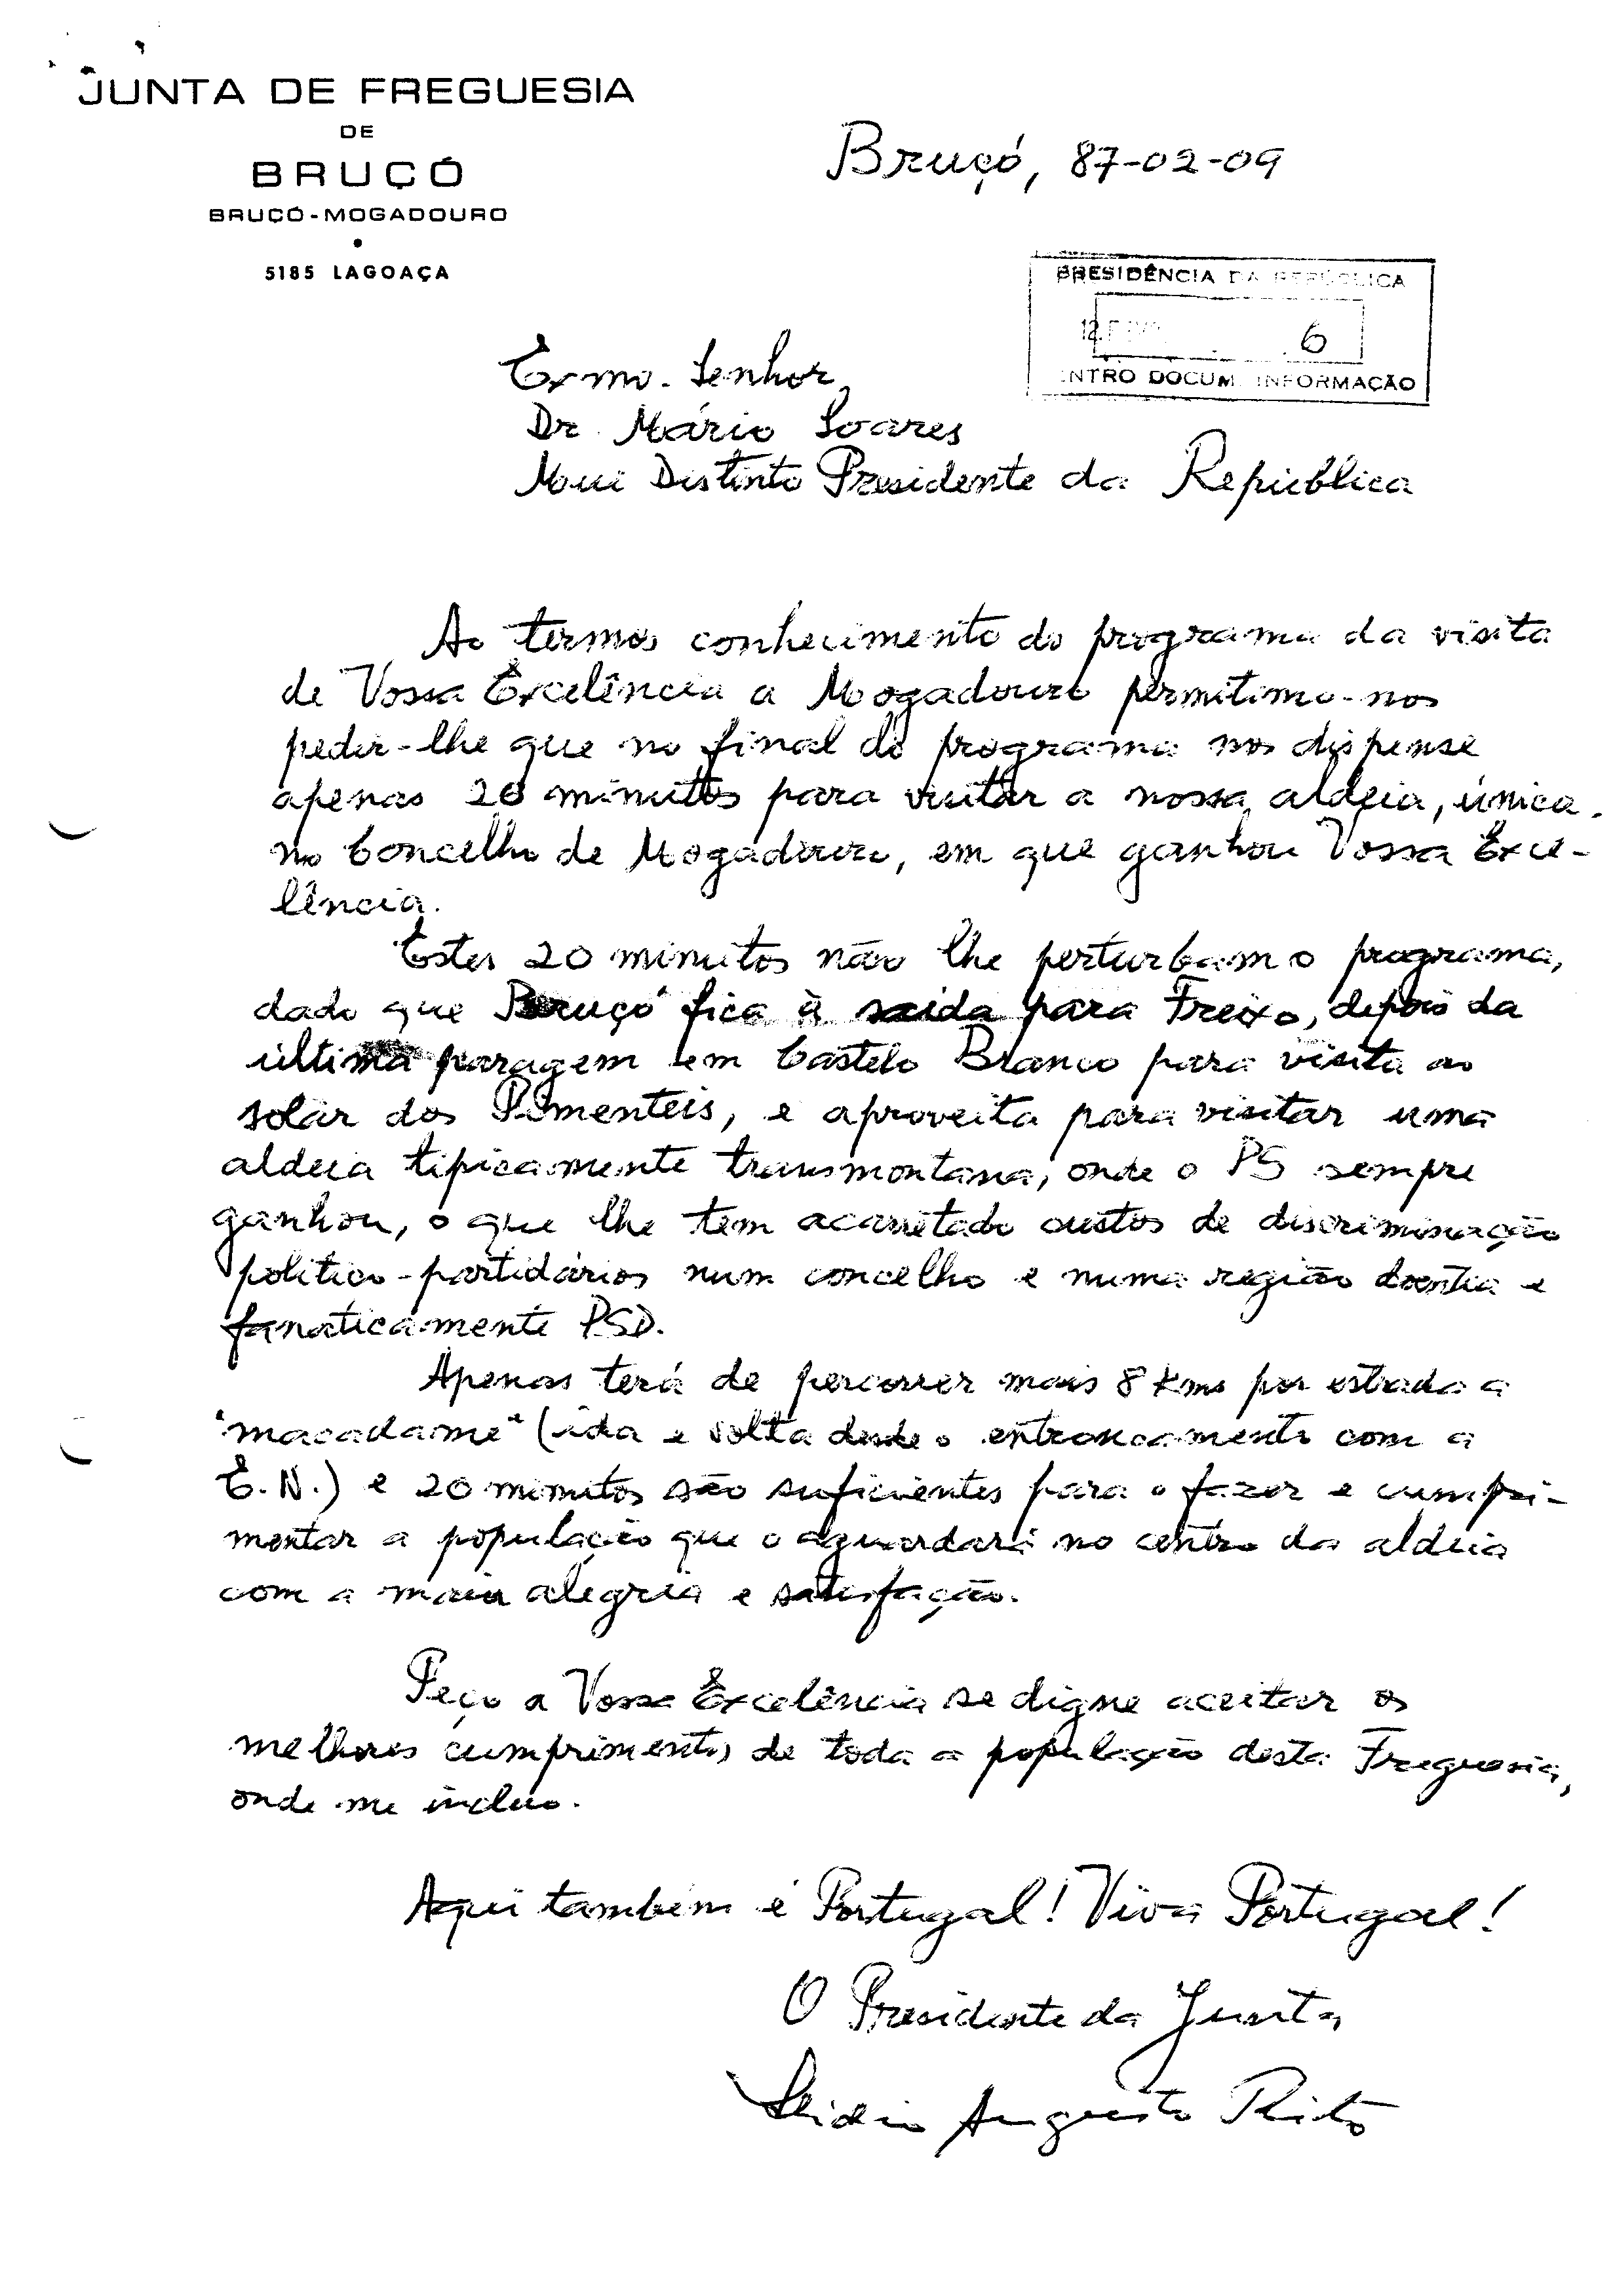 JUNTA DE FREGUESIA
DE
BRUÇÓ
BRUÇÓ-MOGADOURO
5185 LAGOAÇA
Bruçó, 87-02-09
PRESIDÊNCIA DA REPÚBLICA
12 6
NTRO DOCUM. INFORMAÇÃO
Exmo. Senhor,
Dr. Mário Soares
Mui Distinto Presidente da República
Ao termos conhecimento do programa da visita
de Vossa Excelência a Mogadouro permitimo-nos
pedir-lhe que no final do programa nos dispense
apenas 20 minutos para visitar a nossa aldeia, única
no Concelho de Mogadouro, em que ganhou Vossa Exce-
lência.
Estes 20 minutos não lhe perturbam o programa,
dado que Bruçó fica à saida para Freixo, depois da
última paragem em Castelo Branco para visita ao
solar dos Pimenteis, e aproveita para visitar uma
aldeia tipicamente transmontana, onde o PS sempre
ganhou, o que lhe tem acarretado custos de discriminação
politico-partidários num concelho e numa região doentia e
fanaticamente PSD.
Apenas terá de percorrer mais 8 kms por estrada a
"macadame" (ida e volta desde o entroncamento com a
E.N.) e 20 minutos são suficientes para o fazer e cumpri-
mentar a população que o aguardará no centro da aldeia
com a maior alegria e satisfação.
Peço a Vossa Excelência se digne aceitar os
melhores cumprimentos de toda a população desta Freguesia,
onde me incluo.
Aqui também é Portugal! Viva Portugal!
O Presidente da Junta
Augusto